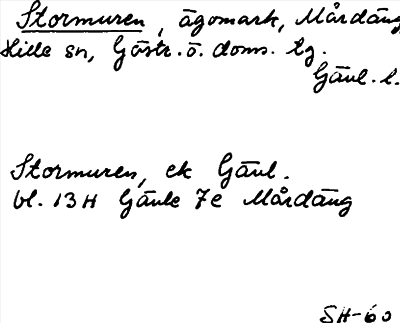 Stormuren, ägomark, Mårdäng
Hille sn, Gästr. ö. doms. tg.
Gävl. l.
Stormuren, ek Gävl.
bl. 13H Gävle 7e Mårdäng
SH-60